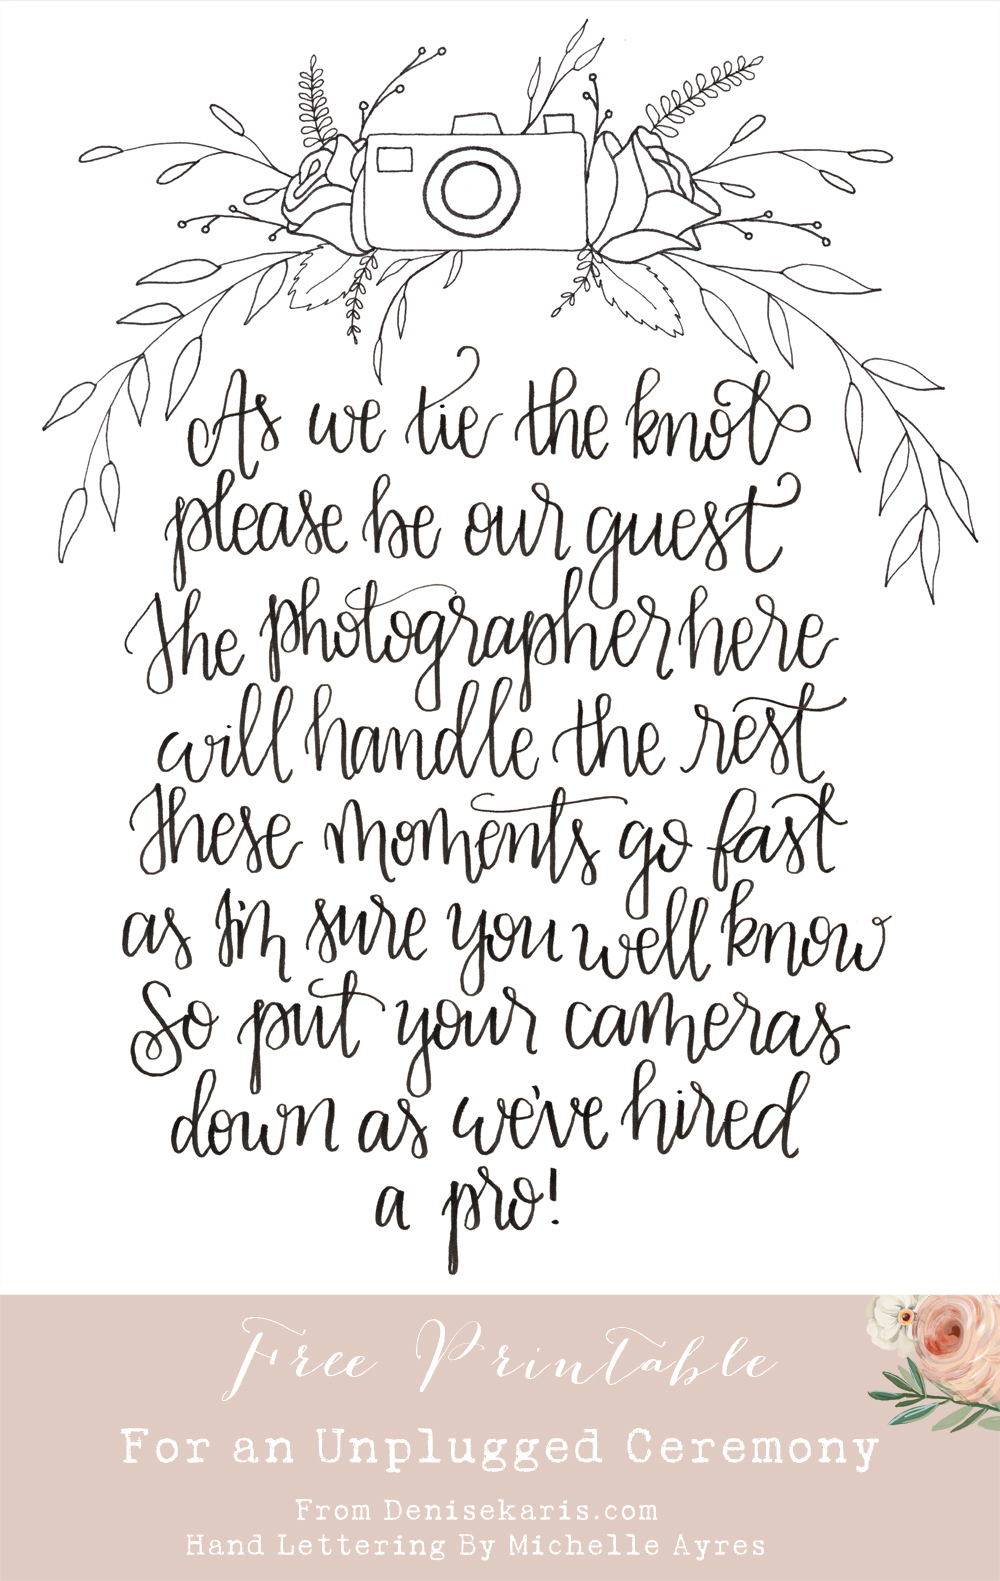 As we tie the knot
please be our guest
The photographer here
will handle the rest
These moments go fast
as I'm sure you well know
So put your cameras
down as we've hired
a pro!
Free Printable
For an Unplugged Ceremony
From Denisekaris.com
Hand Lettering By Michelle Ayres